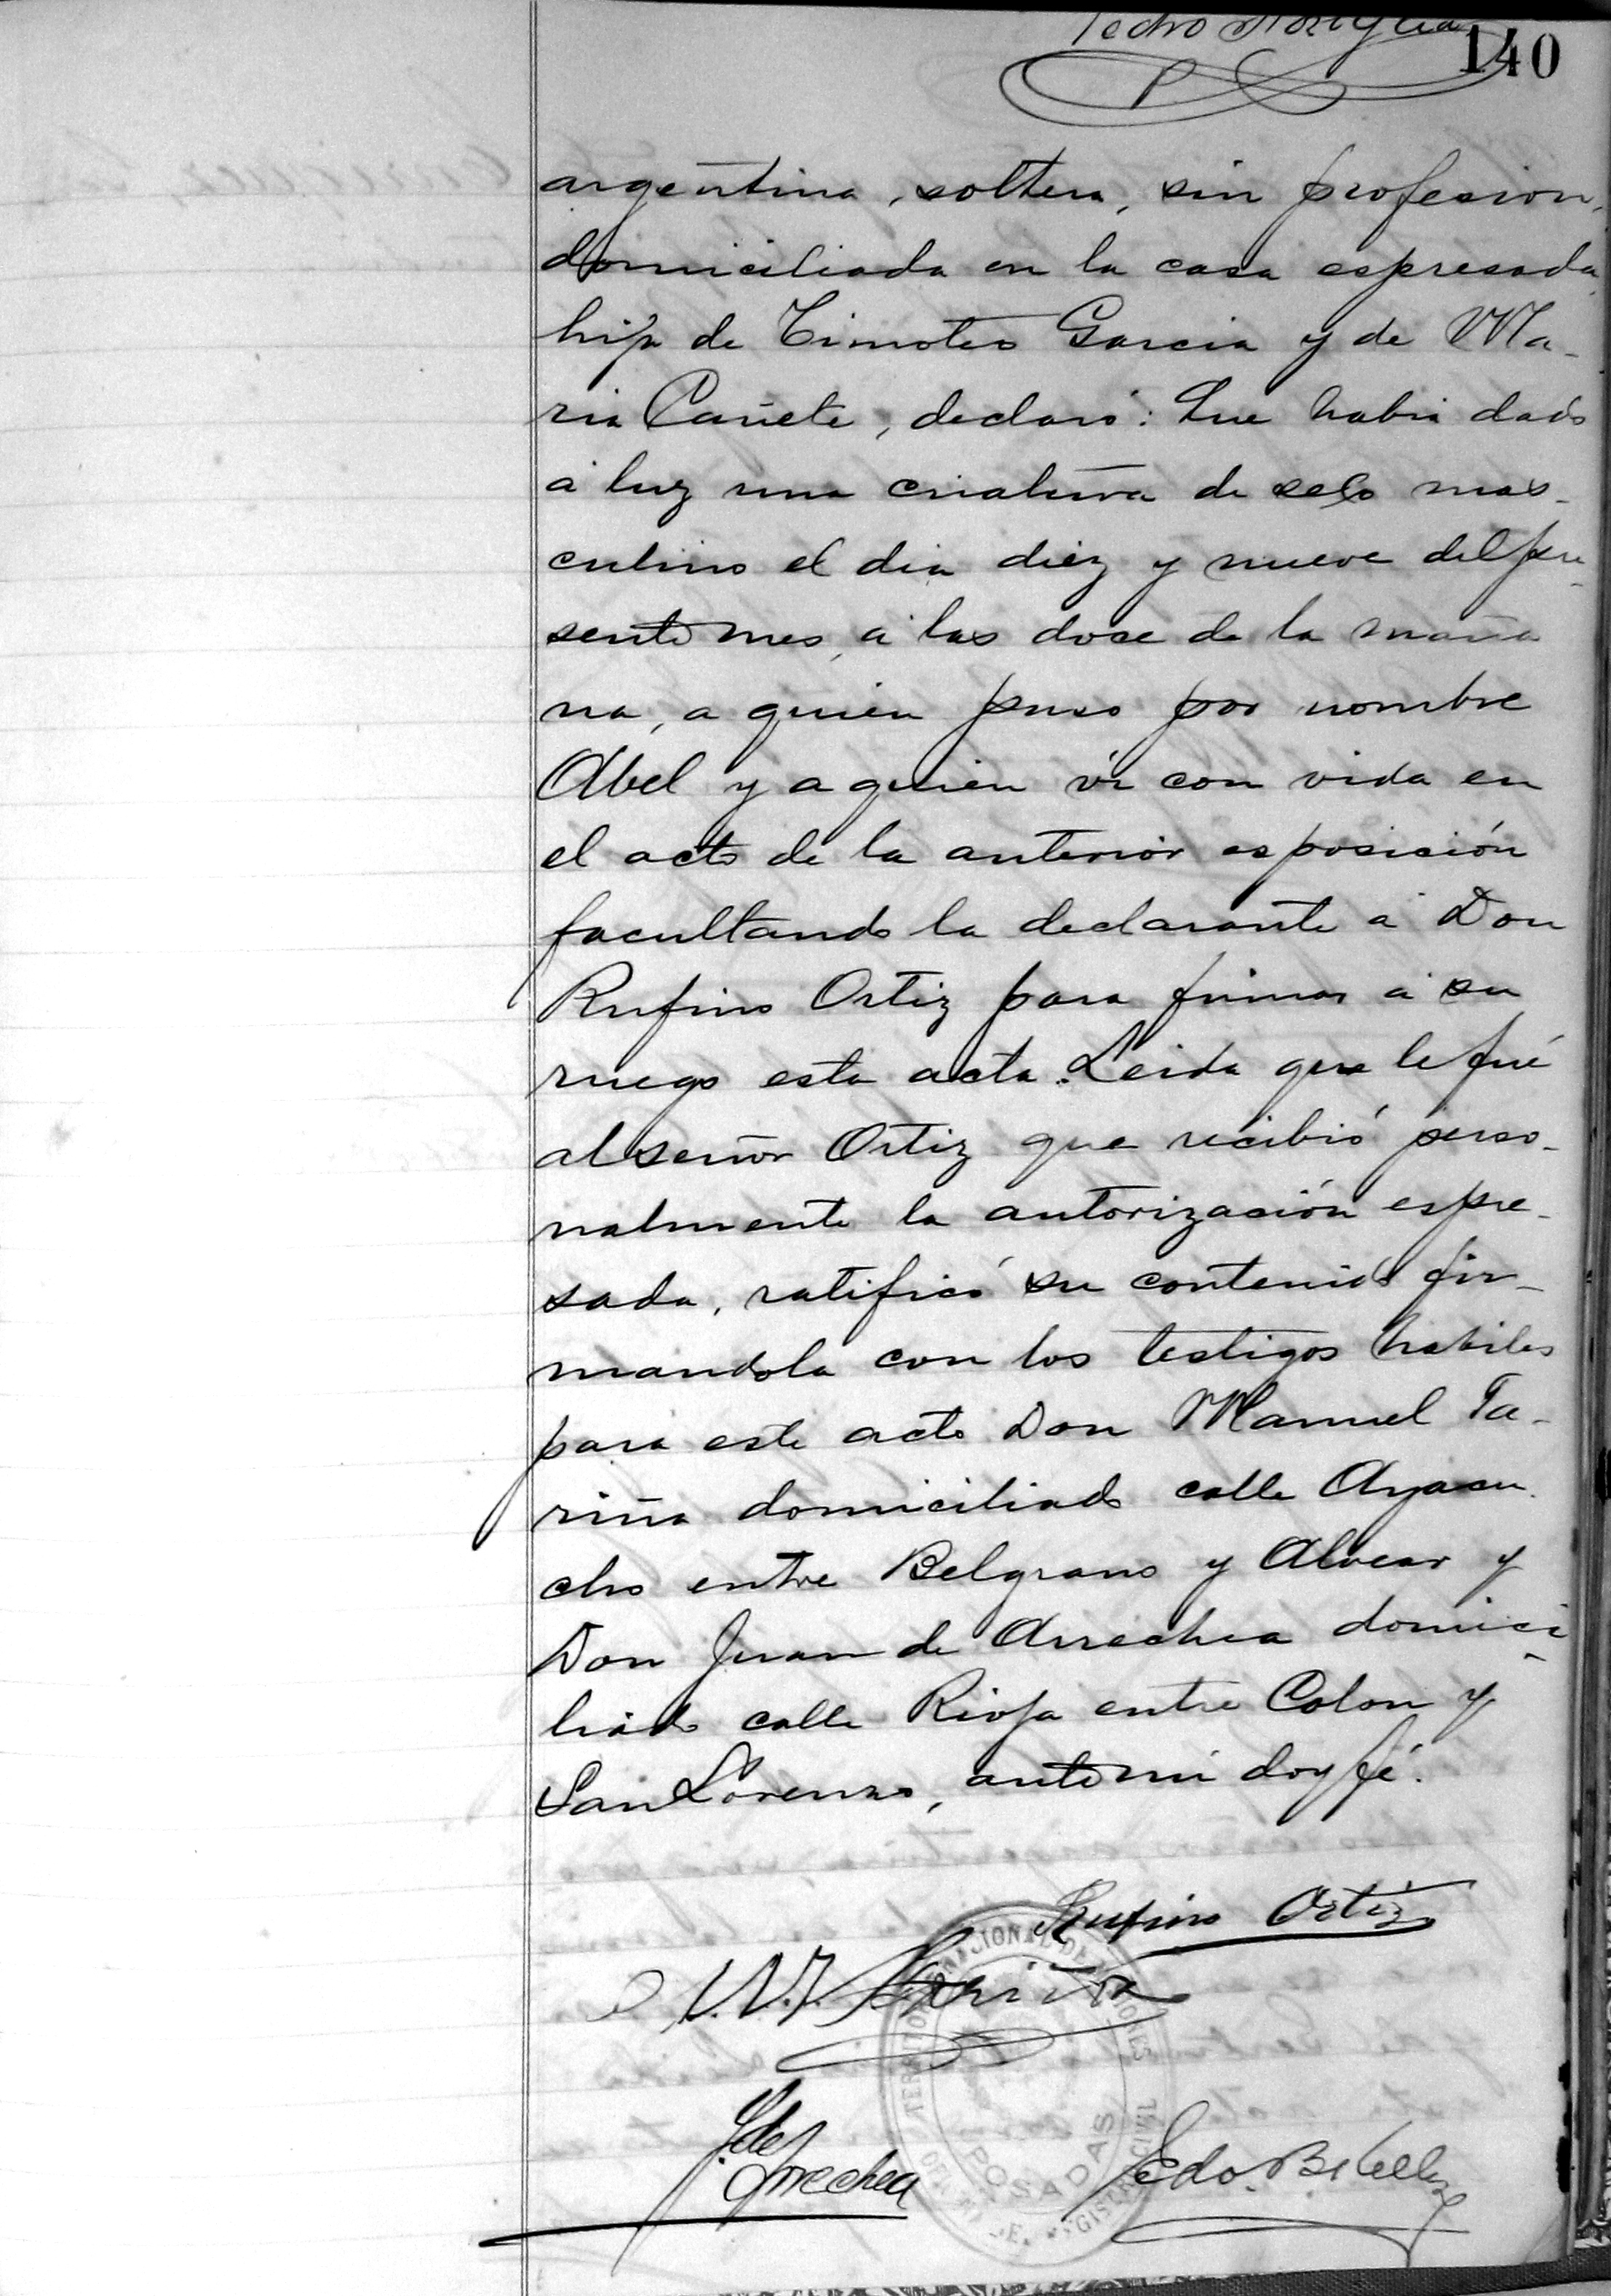 Pedro
140
argentina, soltera, sin profesion,
domiciliada en la casa espresada,
hija de Timoteo Garcia y de Ma-
ria Cañete, declaró: Que habia dado
á luz una criatura de sexo mas-
culino el dia diez y nueve del pre-
sente mes, á las doce de la maña
na, a quien puso por nombre
Abel y a quien ví con vida en
el acto de la anterior esposición
facultando la declarante á Don
Rufino Ortiz para firmar á su
ruego esta acta. Leida que le fué
al señor Ortiz que recibió perso-
nalmente la autorización espre-
sada, ratificó su contenido fir-
mandola con los testigos habiles
para este acto Don Manuel Fa-
riña domiciliado calle Ayacu-
cho entre Belgrano y Alvear y
Don Juan de Arrechea domici-
liado calle Rioja entre Colon y
San Lorenzo, ante mi doy fé.
Rufino Ortiz
Fariña
J. de
Arrechea
Edo.
TERRITORIO NACIONAL DE MISIONES
POSADAS
REGISTRO CIVIL